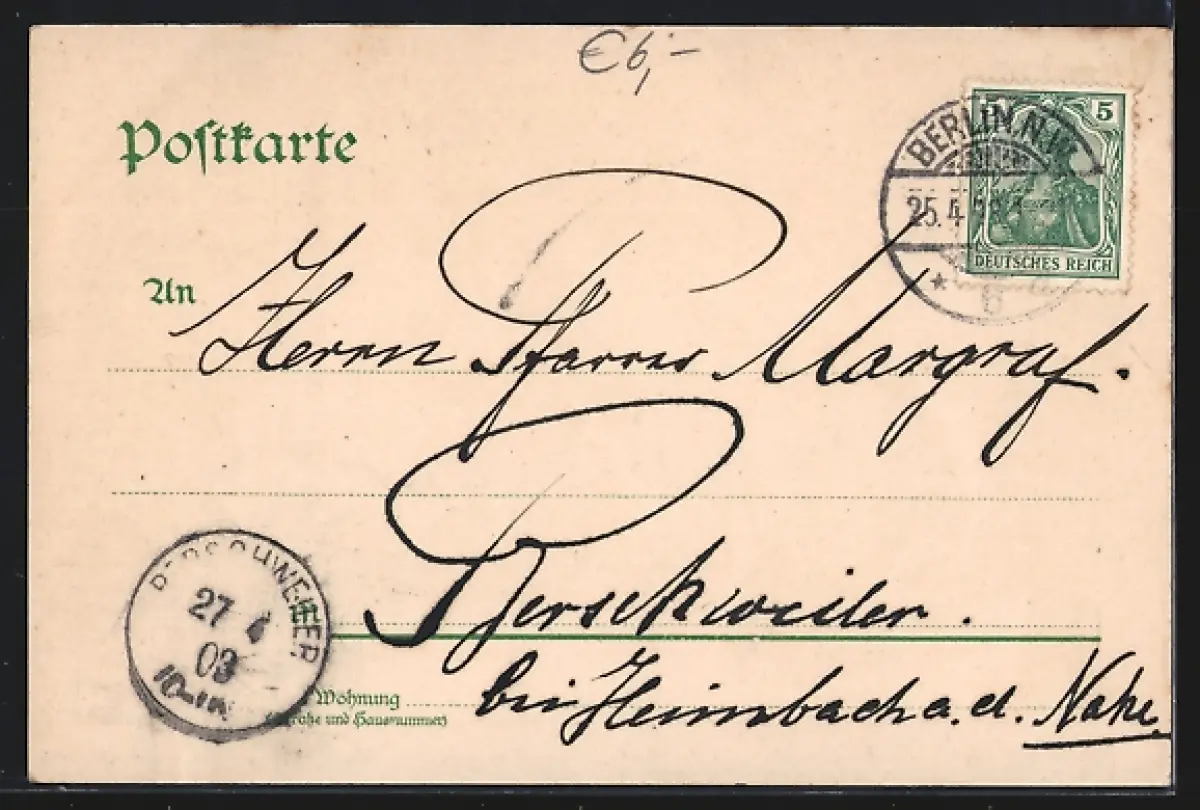 €6,-
Postkarte
5
BERLIN. N.W.
25.4.
* 6
DEUTSCHES REICH
An
Herrn Pfarrer Margraf.
Berschweiler.
BERSCHWEILER
27 4
03
Wohnung
(Straße und Hausnummer)
bei Heimbach a. d. Nahe.